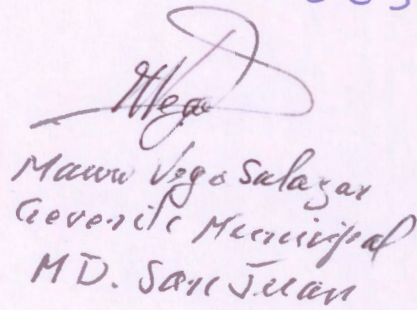 Vega
Mauro Vega Salazar
Gerente Municipal
MD. San Juan